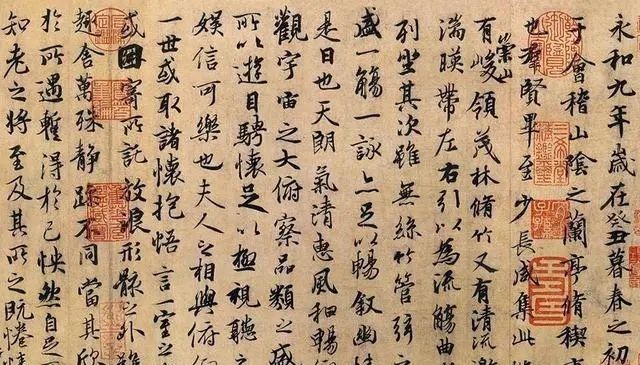 永和九年歲在癸丑暮春之初
于會稽山陰之蘭亭脩稧事
也羣賢畢至少長咸集此
崇山
有峻領茂林脩竹又有清流激
湍暎帶左右引以為流觴曲
列坐其次雖無絲竹管弦之
盛一觴一詠亦足以暢叙幽情
是日也天朗氣清惠風和暢
觀宇宙之大俯察品類之盛
所以遊目騁懷足以極視聽之
娛信可樂也夫人之相與俯仰
一世或取諸懷抱悟言一室之
或因寄所託放浪形骸之外雖
趣舍萬殊静躁不同當其欣
於所遇暫得於己怏然自足
知老之將至及其所之既惓情